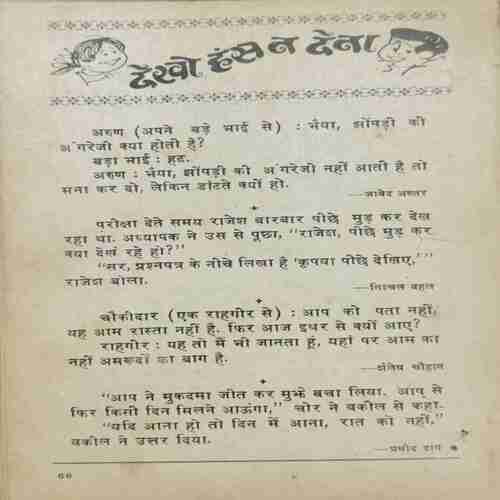 देखो हंस न देना
अरुण (अपने बड़े भाई से) : भैया, झोंपड़ी की
अंगरेजी क्या होती है?
बड़ा भाई : हट.
अरुण : भैया, झोंपड़ी की अंगरेजी नहीं आती है तो
मना कर दो, लेकिन डांटते क्यों हो.
—जावेद अख्तर
परीक्षा देते समय राजेश बारबार पीछे मुड़ कर देख
रहा था. अध्यापक ने उस से पूछा, ''राजेश, पीछे मुड़ कर
क्या देख रहे हो?''
''सर, प्रश्नपत्र के नीचे लिखा है 'कृपया पीछे देखिए,'''
राजेश बोला.
—निश्चल बहल
चौकीदार (एक राहगीर से) : आप को पता नहीं,
यह आम रास्ता नहीं है. फिर आज इधर से क्यों आए?
राहगीर : यह तो मैं भी जानता हूं, यहां पर आम का
नहीं अमरूदों का बाग है.
चौहान
''आप ने मुकदमा जीत कर मुझे बचा लिया. आप से
फिर किसी दिन मिलने आऊंगा,'' चोर ने वकील से कहा.
''यदि आना हो तो दिन में आना, रात को नहीं,''
वकील ने उत्तर दिया.
—प्रमोद राय
66